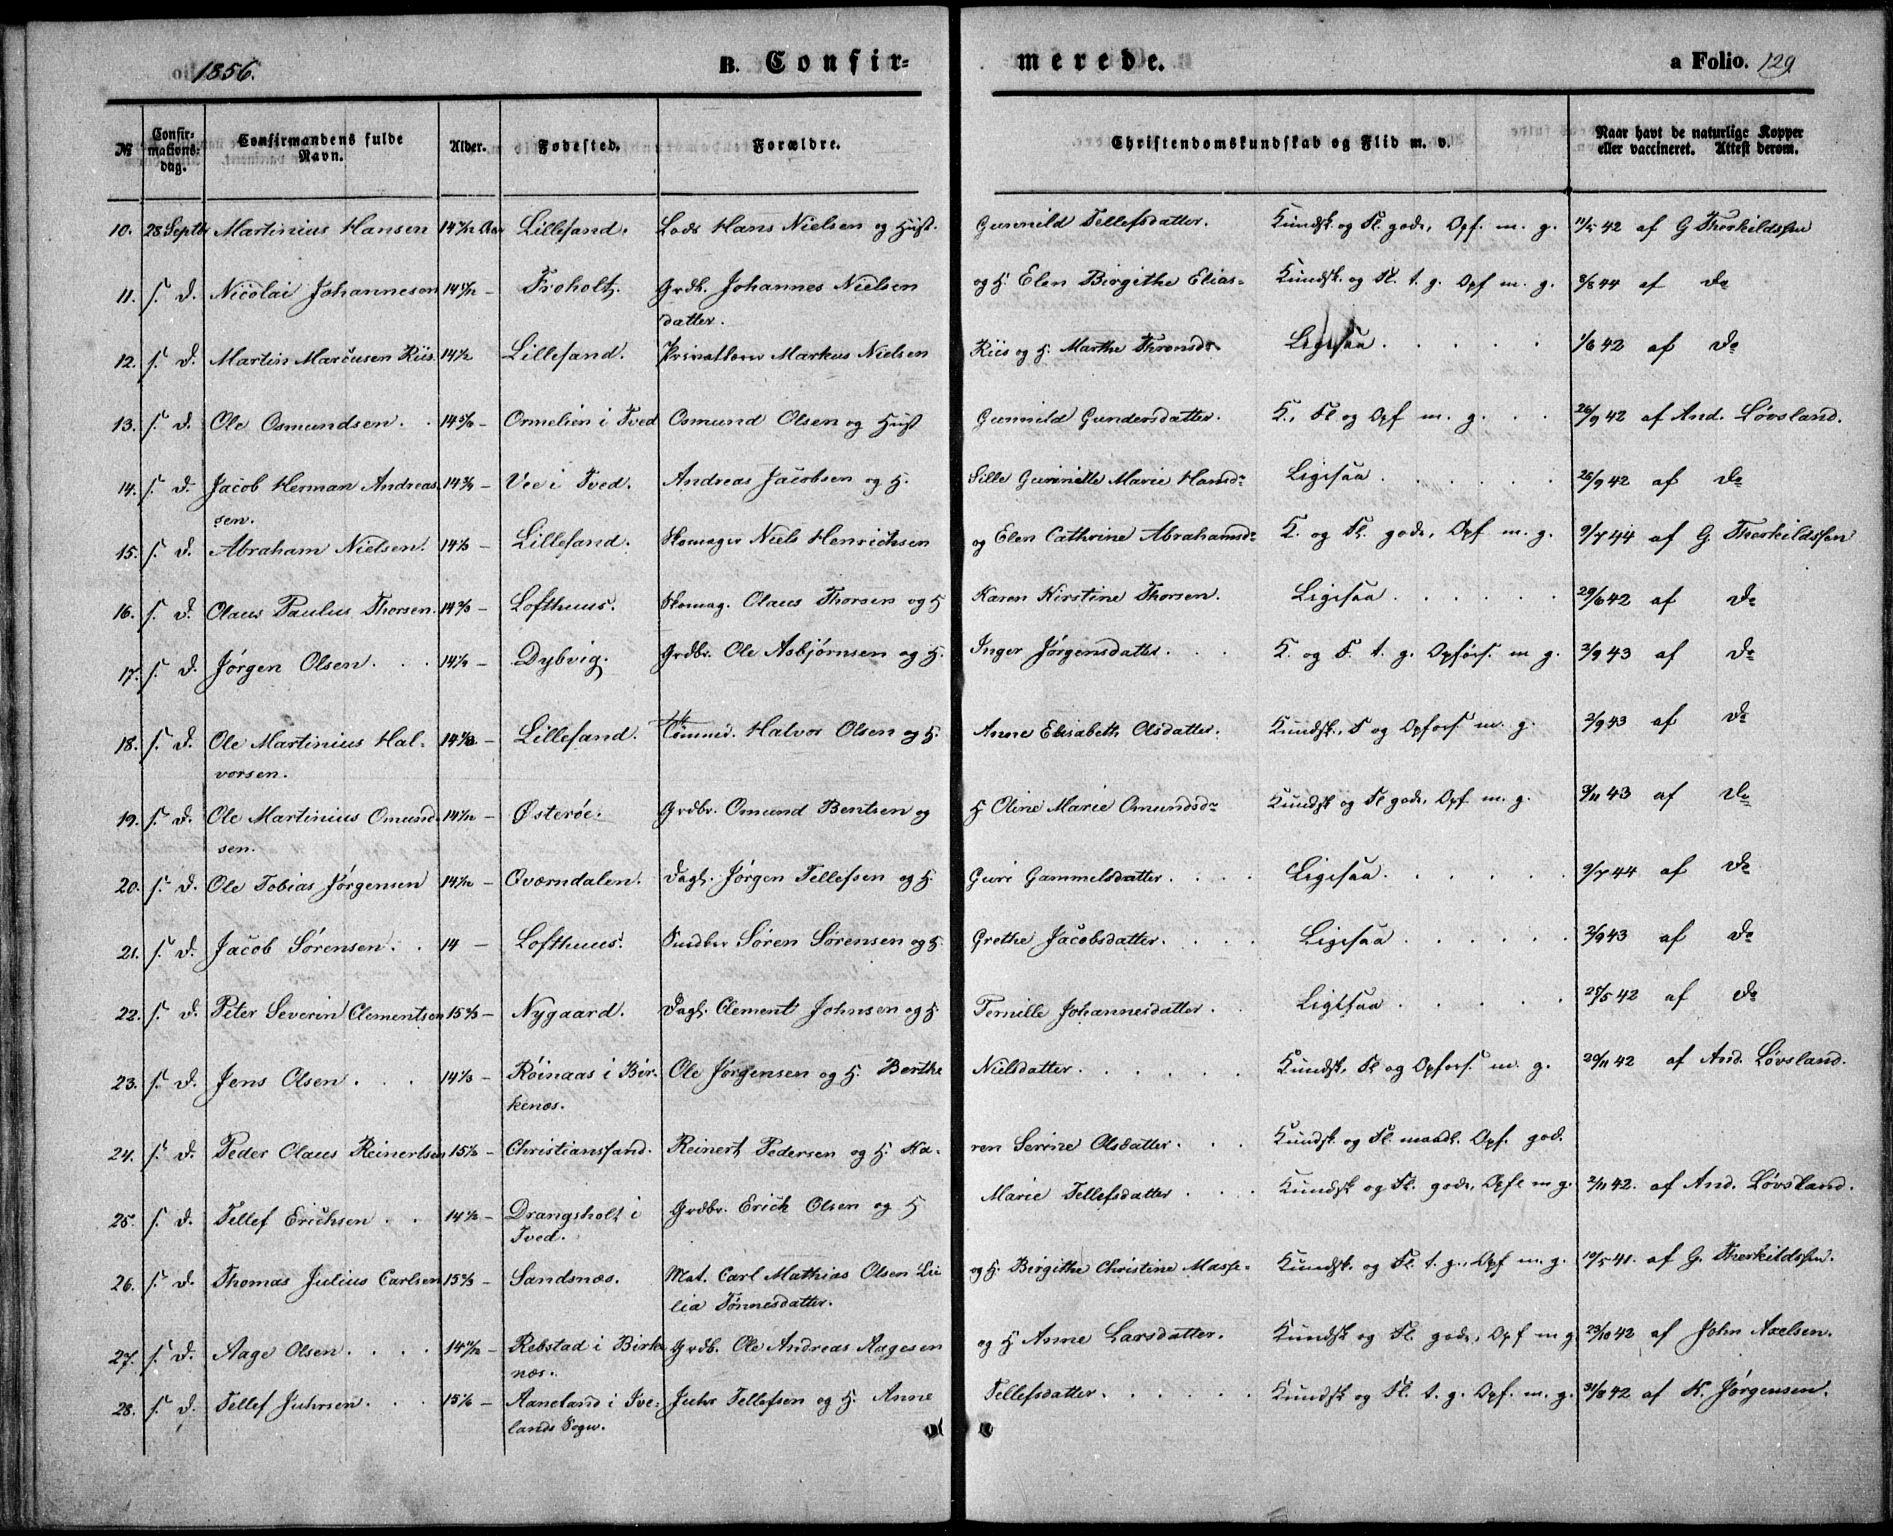 1856.
B. Confir=
merede.
a Folio. 129
№ Confir-mations-dag. Confirmandens fulde Navn. Alder. Fødested. Forældre. Christendomskundskab og Flid m. v. Naar havt de naturlige Kopper eller vaccineret. Attest derom.
10. 28 Septb Martinius Hansen Lillesand. Lods Hans Nielsen og Hust. Gunnild Tellefsdatter. Kundsk. og Fl. gode, Opf. m. g. 11/5 42 af G Therkildssen
11. s. D. Nicolai Johannesen Froholt. Grdb. Johannes Nielsen og H. Elen Birgithe Elias=
datter. Kundsk. og Fl. t. g. Opf m. g. 8/8 44 af Do
12. s. D. Martin Marcusen Riis. 14 1/2 Lillesand. Markus Nielsen Riis og H. Marthe Thronsdr Ligesaa 1/6 42 af Do
13. s. D. Ole Osmundsen. Ormelien i Tved Osmund Olsen og Hust Gunnild Gundersdatter. K., Fl og Opf m. g. 26/9 42 af And. Løvsland.
14. s. D. Jacob Herman Andreas- Vee i Tved. Andreas Jacobsen og H. Sille Gunnille Marie Hansdr Ligesaa 26/9 42 af Do
sen.
15. s. D. Abraham Nielsen. Lillesand. Skomager Niels Henrichsen og Elen Cathrine Abrahamsdr K. og Fl. gode, Opf m. g. 9/7 44 af G Therkildssen
16. s. D. Olaus Paulus Thorsen. Lofthuus. Skomag. Olaus Thorsen og H Karen Kirstine Thorsen. Ligesaa 29/6 42 af Do
17. s. D. Jørgen Olsen. 14 1/2 - Dybvig. Grdbr. Ole Asbjørnsen og H. Inger Jørgensdatter. K. og F. t. g. Opførs. m g. 2/9 43 af Do
18. s. D. Ole Martinius Hal- Lillesand. Tømmer. Halvor Olsen og H. Anne Elisabeth Olsdatter. Kundsk., F og Opfors m. g. 2/9 43 af Do
vorsen.
19. s. D. Ole Martinius Omund- Østerøe. Grdbr. Omund Bentsen og H Oline Marie Omundsdr Kundsk og Fl gode, Opf m. g. 43 af Do
sen.
20. s. D. Ole Tobias Jørgensen Qværndalen. Dagl. Jørgen Tellefsen og H. Guri Gammelsdatter. Ligesaa 9/7 44 af Do
21. s. D. Jacob Sørensen. 14 - Lofthuus. Søren Sørensen og H. Grethe Jacobsdatter. Ligesaa 2/9 43 af Do
22. s. D. Peter Severin Clementsen Nygaard. Dagl. Clement Johnsen og H. Pernille Johannesdatter. Ligesaa 25/5 42 af Do
23. s. D. Jens Olsen. Røinaas i Bir- Ole Jørgensen og H. Berthe Nielsdatter. Kundsk, Fl og Opfors. m. g. 20/11 42 af And. Løvsland.
kenæs.
24. s. D. Peder Olaus Reinertsen Christianssand. Reinert Pedersen og H. Ka- ren Serine Olsdatter. Kundsk. og Fl. maadl. Opf. god.
25. s. D. Tellef Erichsen 14 1/2 - Drangsholt i Grdbr. Erich Olsen og H Marie Tellefsdatter Kundsk og Fl. gode, Opf m g. 2/11 42. af And. Løvsland.
Tved.
26. s. D. Thomas Julius Carlsen Sandsnæs. Mat. Carl Mathias Olsen Li og H. Birgithe Christine Masse- Kundsk. og Fl. t. g., Opf m. g. 10/5 41. af G. Therkildssen.
lia Tønnesdatter.
27. s. D. Aage Olsen. Rebstad i Birke Grdb. Ole Andreas Aagesen og H Anne Larsdatter. Kundsk og Fl. gode, Opf m g 23/10 42 af John Axelsen.
næs.
28. s. D. Tellef Juhrsen. Aaneland i Ive- Juhr Tellefsen og H. Anne Tellefsdatter. Kundsk og Fl. t. g. Opf. m. g. 31/8 42 af K. Jørgensen.
lands Sogn.